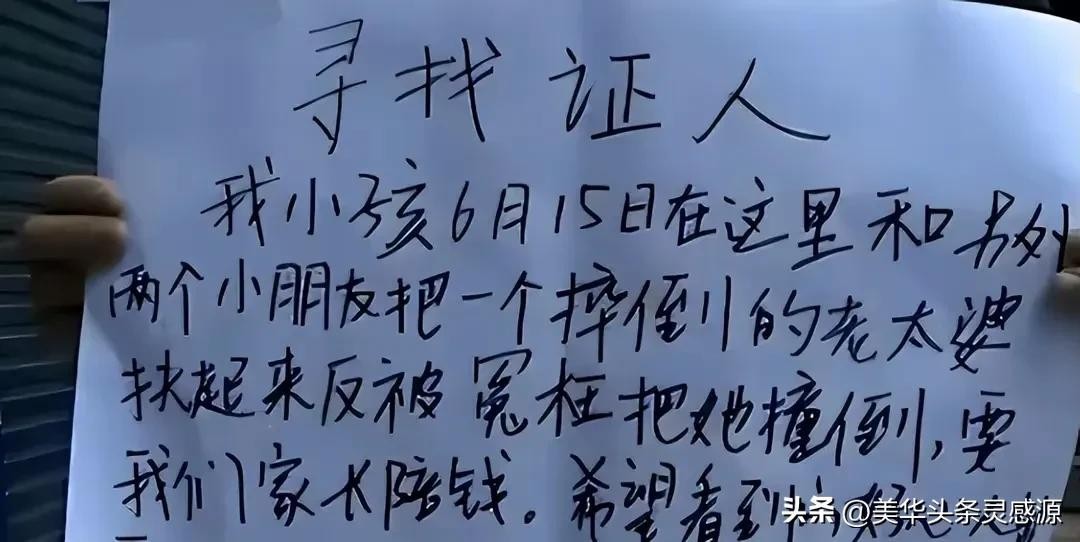 寻找证人
我小孩6月15日在这里和另外
两个小朋友把一个摔倒的老太婆
扶起来反被冤枉把她撞倒,要
我们家长陪钱。希望看到的好
头条@美华头条灵感源